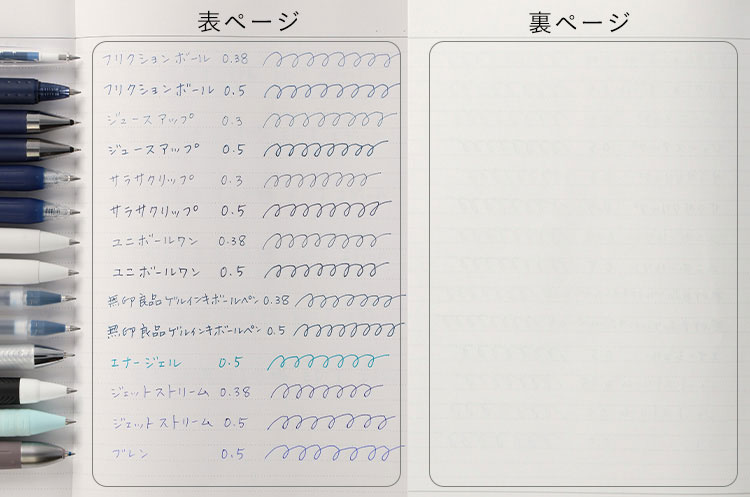 表ページ
裏ページ
フリクションボール 0.38
フリクションボール 0.5
ジュースアップ 0.3
ジュースアップ 0.5
サラサクリップ 0.3
サラサクリップ 0.5
ユニボールワン 0.38
ユニボールワン 0.5
無印良品ゲルインキボールペン 0.38
無印良品ゲルインキボールペン 0.5
エナージェル 0.5
ジェットストリーム 0.38
ジェットストリーム 0.5
ブレン 0.5